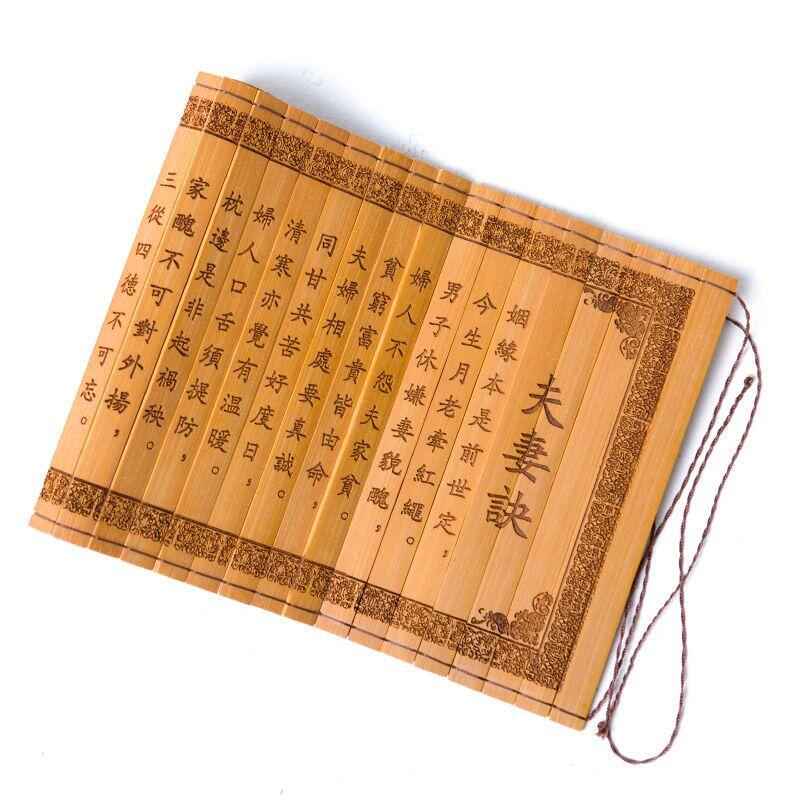 夫妻訣
姻緣本是前世定，
今生月老牽紅繩。
男子休嫌妻貌醜，
婦人不怨夫家貧。
貧窮富貴皆由命，
夫婦相處要真誠。
同甘共苦好度日，
清寒亦覺有溫暖。
婦人口舌須提防，
枕邊是非起禍秧。
家醜不可對外揚，
三從四德不可忘。